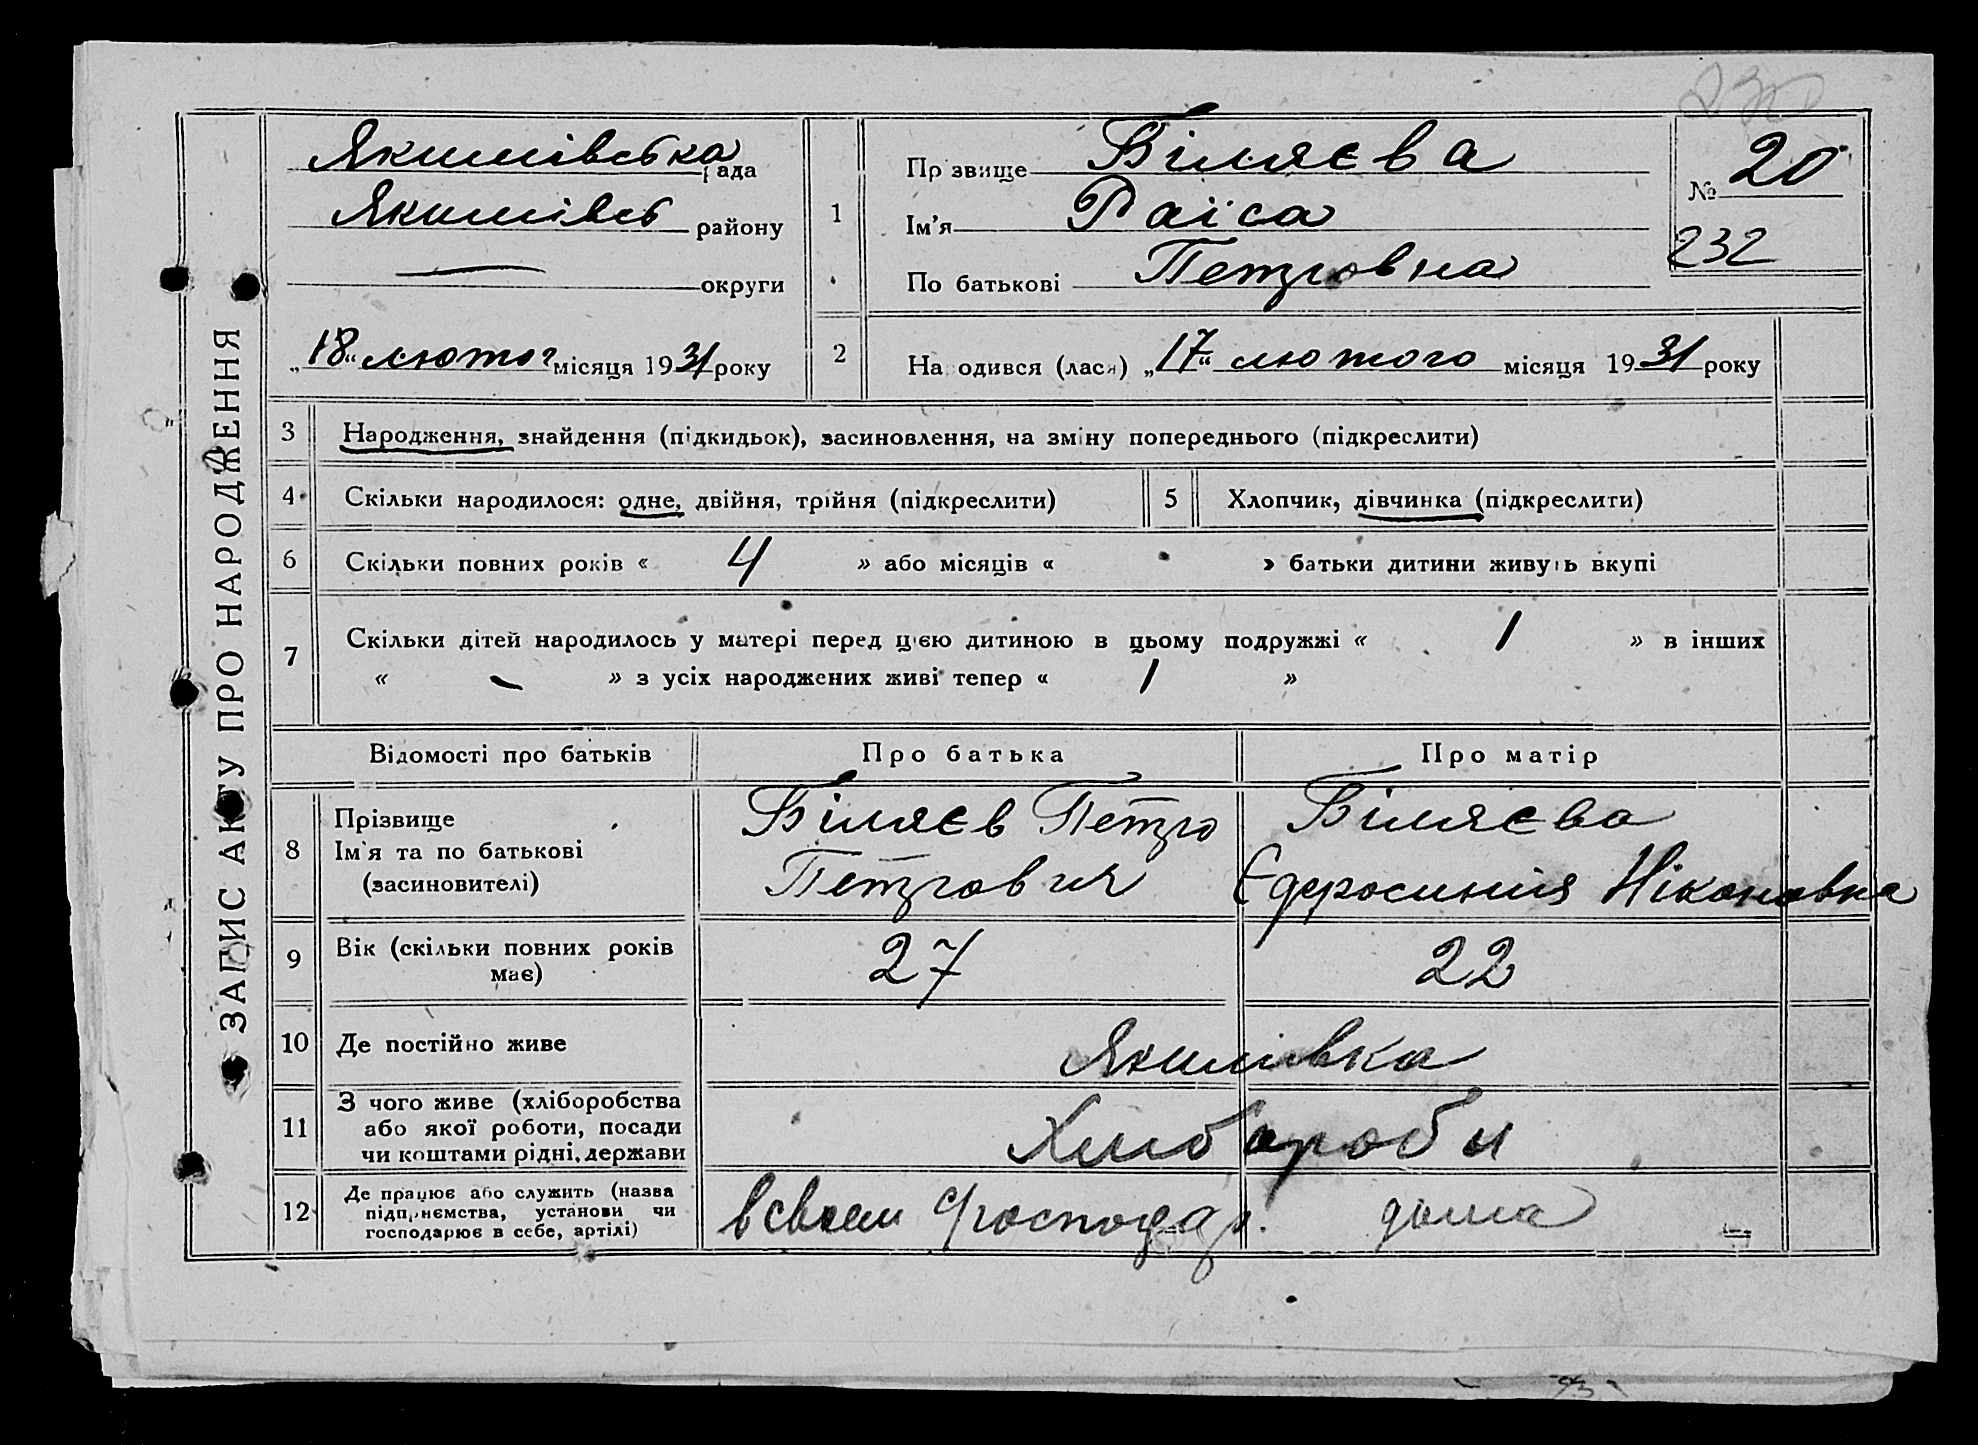 ЗАПИС АКТУ ПРО НАРОДЖЕННЯ
Якимівська рада
Якимівсь району
— округи
„18“ лютог місяця 1931 року
1
Прізвище Біляєва
Ім'я Раїса
По батькові Петровна
№ 20
232
2
Народився (лася) „17“ лютого місяця 1931 року
3 Народження, знайдення (підкидьок), засиновлення, на зміну попереднього (підкреслити)
4 Скільки народилося: одне, двійня, трійня (підкреслити) 5 Хлопчик, дівчинка (підкреслити)
6 Скільки повних років « 4 » або місяців « » батьки дитини живуть вкупі
7 Скільки дітей народилось у матері перед цією дитиною в цьому подружжі « 1 » в інших
« - » з усіх народжених живі тепер « 1 »
Відомості про батьків Про батька Про матір
8 Прізвище
Ім'я та по батькові
(засиновителі)
Біляєв Петро
Петрович
Біляєва
Єфросиния Ніконовна
9 Вік (скільки повних років
має)
27 22
10 Де постійно живе Якимівка
11 З чого живе (хліборобства
або якої роботи, посади
чи коштами рідні, держави
Хлібороби
12 Де працює або служить (назва
підприємства, установи чи
господарює в себе, артілі)
в своем господар. дома